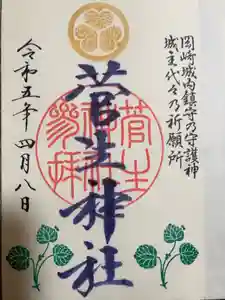 岡崎城内鎮守乃守護神
城主代々乃祈願所
菅生神社
菅生神社
参拝
令和五年四月八日